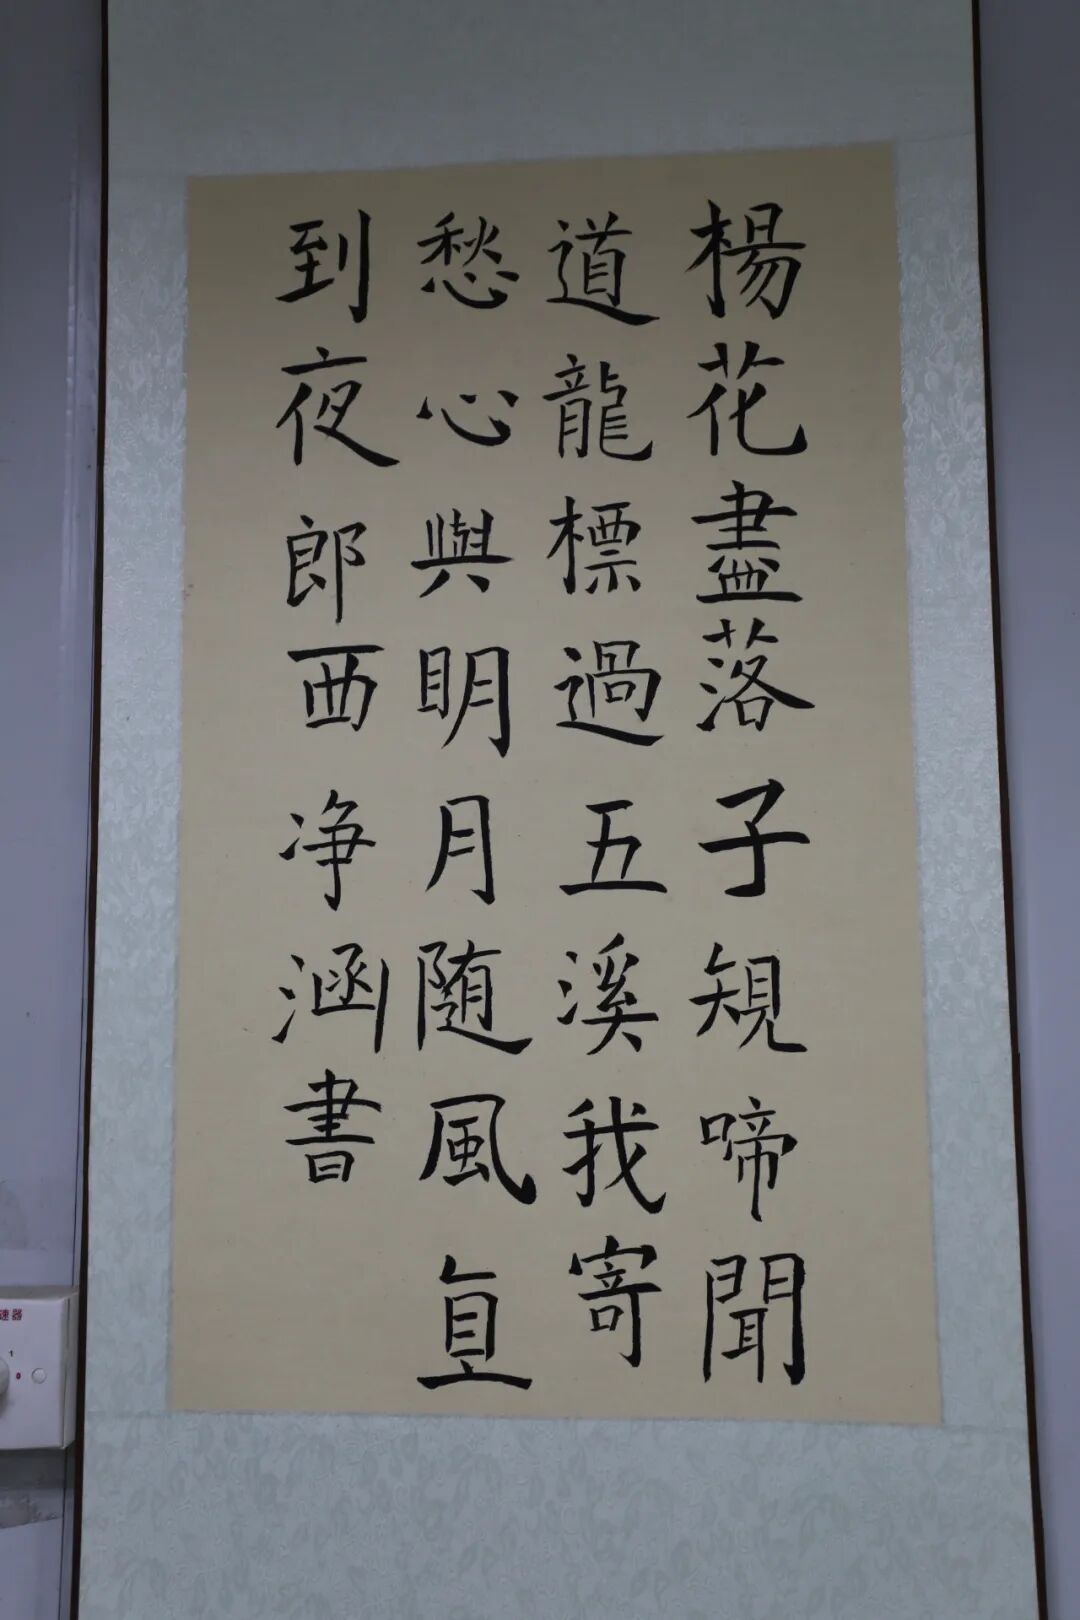 楊花盡落子規啼聞
道龍標過五溪我寄
愁心與明月随風直
到夜郎西净涵書
速器
1
0